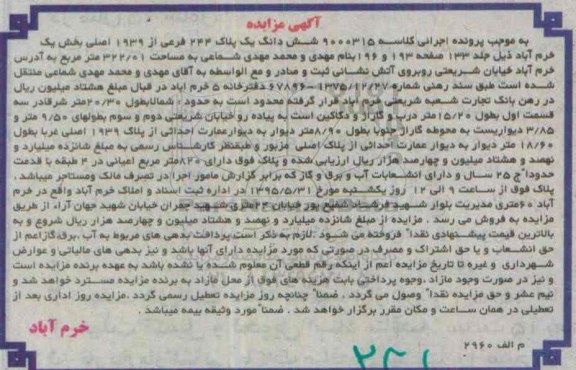 آگهی مزایده
به موجب پرونده اجرائی کلاسه ۹۰۰۰۳۱۵ شش دانگ یک پلاک ۲۴۴ فرعی از ۱۹۳۹ اصلی بخش یک
خرم آباد ذیل جلد ۱۳۳ صفحه ۱۹۳ و ۱۹۶ بنام مهدی و محمد مهدی شماعی به مساحت ۳۲۲/۰۱ متر مربع به آدرس
خرم آباد خیابان شریعتی روبروی آتش نشانی ثبت و صادر و مع الواسطه به آقای مهدی و محمد مهدی شماعی منتقل
شده است طبق سند رهنی شماره ۶۷۸۹۶ - دفترخانه ۵ خرم اباد در قبال مبلغ هشتاد میلیون ریال
در رهن بانک تجارت شعبه شریعتی خرم آباد قرار گرفته محدود است به حدود : شمالا بطول ۲۰/۳۰ متر شرقا در سه
قسمت اول بطول ۱۵/۲۰ متر درب و گاراژ و دکاکین است به پیاده رو خیابان شریعتی دوم و سوم بطولهای ۹/۵۰ متر و
۳/۸۵ دیواریست به محوطه گاراژ جنوبا بطول ۸/۹۰ متر دیوار به دیوار عمارت احداثی از پلاک ۱۹۳۹ اصلی غربا بطول
۱۸/۶۰ متر دیوار به دیوار عمارت احداثی از پلاک اصلی مزبور و طبق نظر کارشناس رسمی به مبلغ شانزده میلیارد و
نهصد و هشتاد میلیون و چهارصد هزار ریال ارزیابی شده و پلاک فوق دارای ۸۲۰ متر مربع اعیانی در ۴ طبقه با قدمت
حدودا ۲۵ سال و دارای انشعابات آب و برق و گاز که برابر گزارش مامور اجرا در تصرف مالک و مستاجر میباشد .
پلاک فوق از ساعت ۹ الی ۱۲ روز یکشنبه مورخ ۱۳۹۵/۵/۳۱ در اداره ثبت اسناد و املاک خرم آباد واقع در خرم
آباد ۶۰ متری مدیریت بلوار شهید فرشاد شفیع پور خیابان ۲۴ متری شهید چمران خیابان شهید جهان آرا، از طریق
مزایده به فروش می رسد . مزایده از مبلغ شانزده میلیارد و نهصد و هشتاد میلیون و چهارصد هزار ریال شروع و به
بالاترین قیمت پیشنهادی نقدا" فروخته می شود .لازم به ذکر است پرداخت بدهی های مربوط به آب ،برق،گاز اعم از
حق انشعاب و یا حق اشتراک و مصرف در صورتی که مورد مزایده دارای آنها باشد و نیز بدهی های مالیاتی و عوارض
شهرداری و غیره تا تاریخ مزایده اعم از اینکه رقم قطعی آن معلوم شده یا نشده باشد به عهده برنده مزایده است
و نیز در صورت وجود مازاد ،وجوه پرداختی بابت هزینه های فوق از محل مازاد به برنده مزایده مسترد خواهد شد و
نیم عشر و حق مزایده نقدا" وصول می گردد . ضمنا" چنانچه روز مزایده تعطیل رسمی گردد ،مزایده روز اداری بعد از
تعطیلی در همان ساعت و مکان مقرر برگزار خواهد شد . ضمنا" مورد وثیقه بیمه میباشد .
خرم آباد
م الف ۲۹۶۰